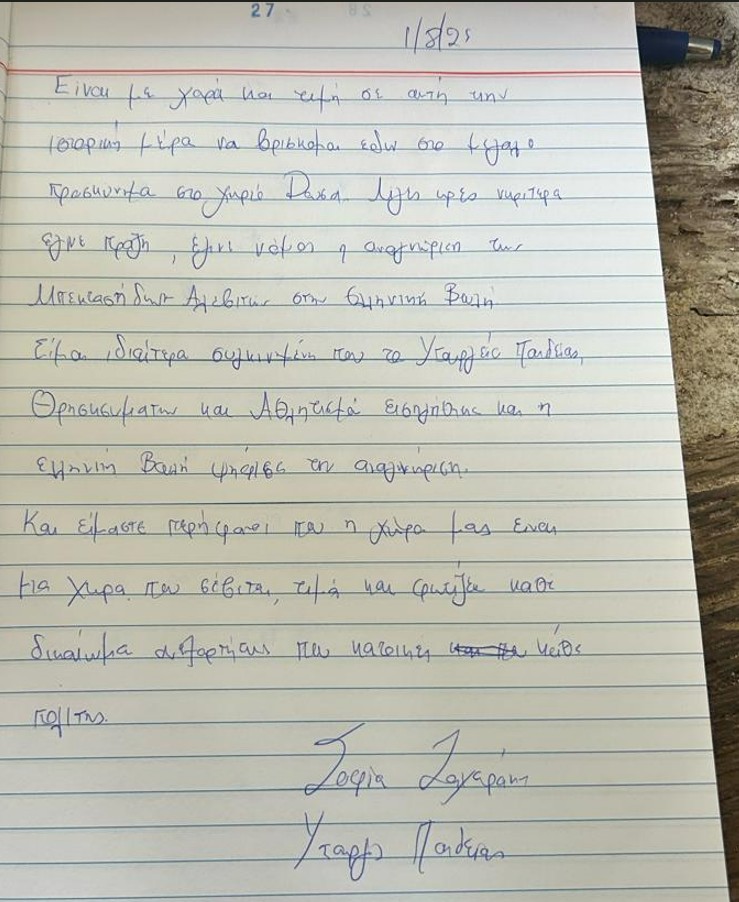 27
1/8/25
Είναι με χαρά και τιμή σε αυτή την
ιστορική μέρα να βρίσκομαι εδω στο μεγαλο
προσκυνημα στο χωριό Ρουσσα. Λίγες ωρες νωριτερα
έγινε πραξη, έγινε νόμος η αναγνώριση των
Μπεκτασήδων Αλεβιτων στην Ελληνική Βουλή
Είμαι ιδιαίτερα συγκινημένη που το Υπουργείο Παιδειας,
Θρησκευματων και Αθλητισμού εισηγήθηκε και η
ελληνική Βουλή ψήφισε την αναγνώριση.
Και είμαστε περήφανοι που η χώρα μας ειναι
μια χωρα που σέβεται, τιμά και φωτίζει καθε
δικαίωμα που κατοικεί κάθε
πολίτης.
Σοφία Ζαχαράκη
Υπουργός Παιδειας